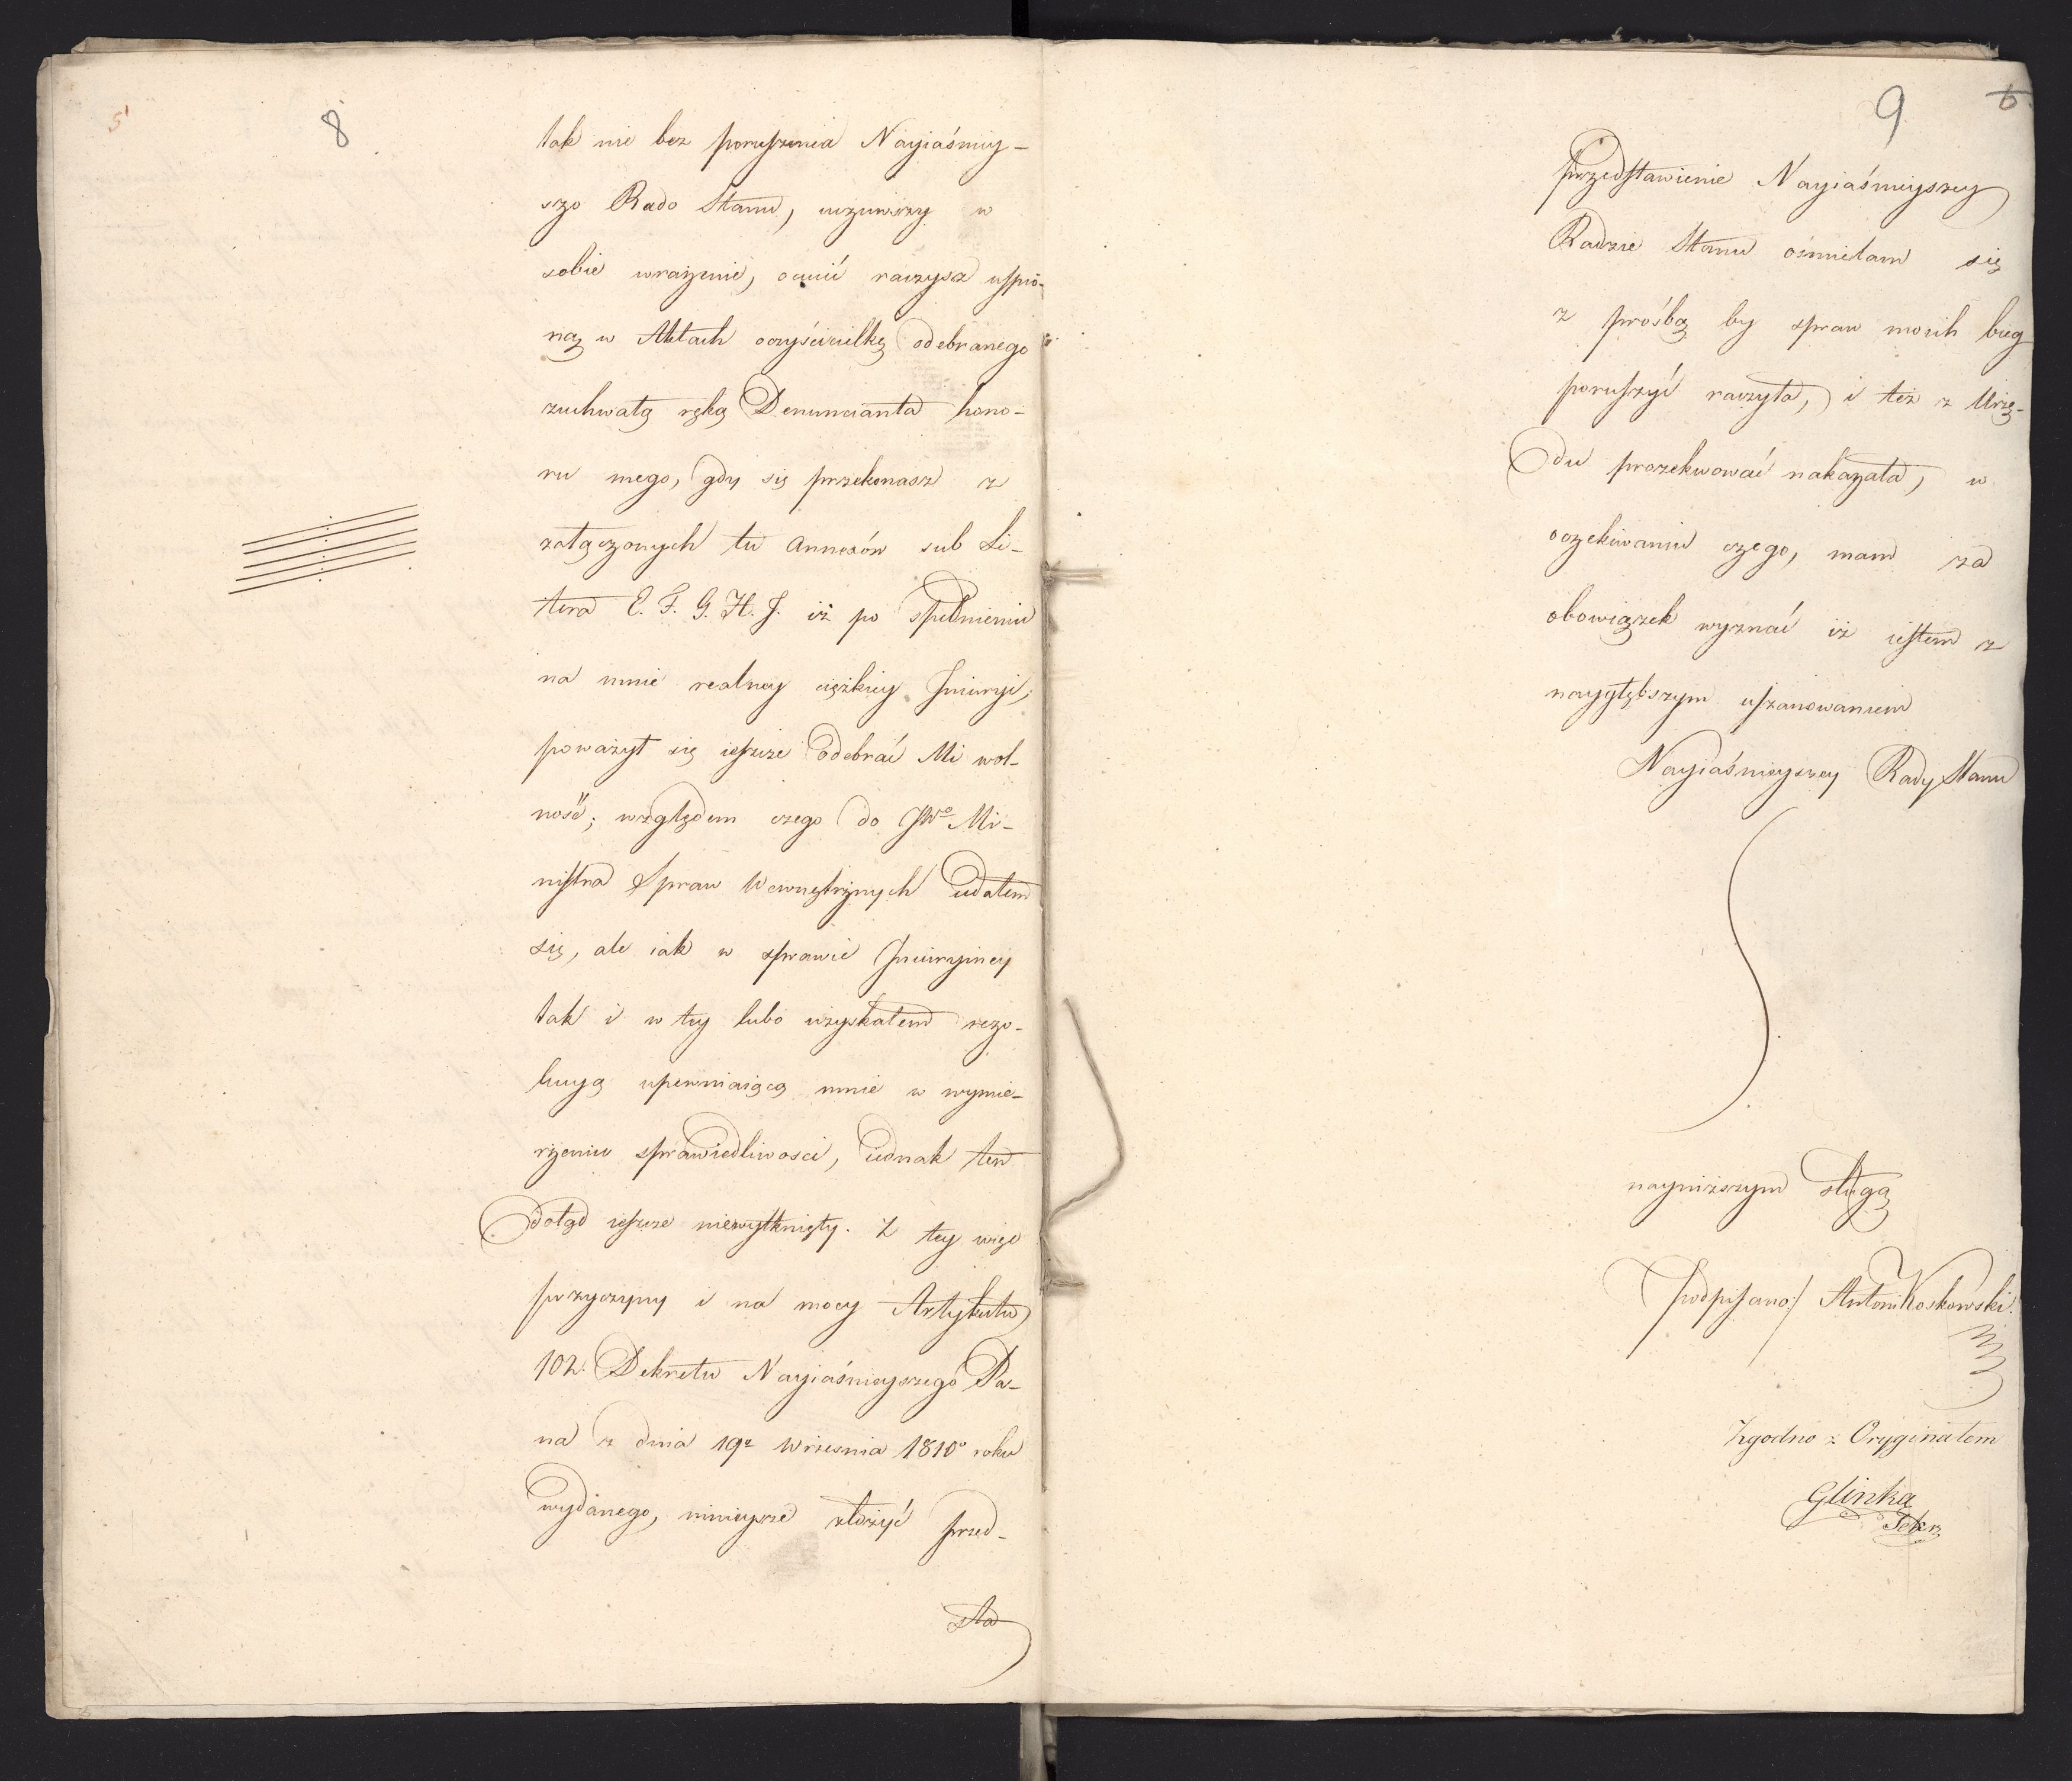 5
8
tak nie bez poruszenia Nayiaśniey-
sza Rado Stanu, uczuwszy w
sobie wrażenie, ocenić raczysz uspio-
ną w Aktach oczyścicielkę odebranego
zuchwałą ręką Denuncianta hono-
ru mego, gdy się przekonasz z
załączonych tu Annexów sub Li-
tera E. F. G. H. J. iż po spełnieniu
na mnie realney ciężkiey Jniuryi,
poważył się ieszcze odebrać Mi wol-
ność; względem czego do JWo Mi-
nistra Spraw Wewnętrznych udałem
się, ale iak w sprawie Jniuryiney
tak i w tey lubo uzyskałem rezo-
lucyą upewniaiącą mnie w wymie-
rzeniu sprawiedliwosci, iednak ten
dotąd ieszcze niewytknięty. Z tey więc
przyczyny i na mocy Artykułu
102. Dekretu Nayiaśnieyszego Pa-
na z dnia 19º Wrzesnia 1810º roku
wydanego, ninieysze złożyć przed-
sta
9
6
przedstawienie Nayiaśnieyszey
Radzie Stanu ośmielam się
z prośbą by spraw moich bieg
poruszyć raczyła, i też z Urzę-
du prozekwować nakazała, w
oczekiwaniu czego, mam za
obowiązek wyznać iż iestem z
naygłębszym uszanowaniem
Nayiaśnieyszey Rady Stanu
nayniższym sługą
podpisano:/ Antoni Koskowski.
Zgodno z Oryginałem
Glinka
Sekr